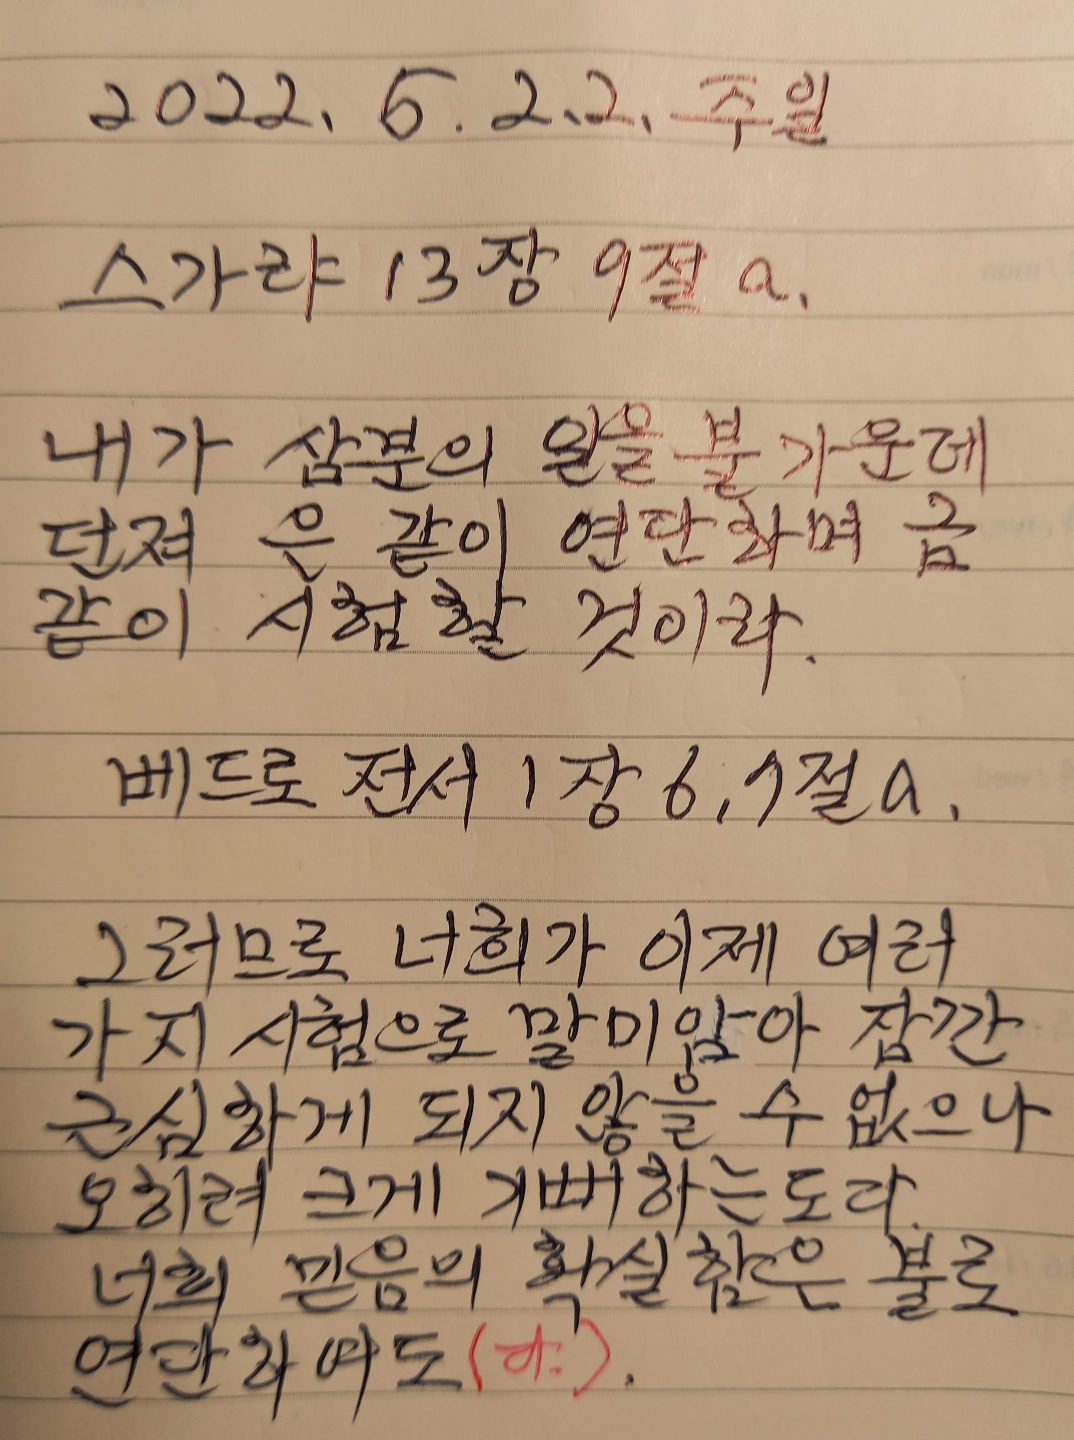 2022. 5. 22. 주일
스가랴 13장 9절 a.
내가 삼분의 일을 불 가운데
던져 은 같이 연단하며 금
같이 시험할 것이라.
베드로 전서 1장 6, 7절 a.
그러므로 너희가 이제 여러
가지 시험으로 말미암아 잠깐
근심하게 되지 않을 수 없으나
오히려 크게 기뻐하는도다.
너희 믿음의 확실함은 불로
연단하여도